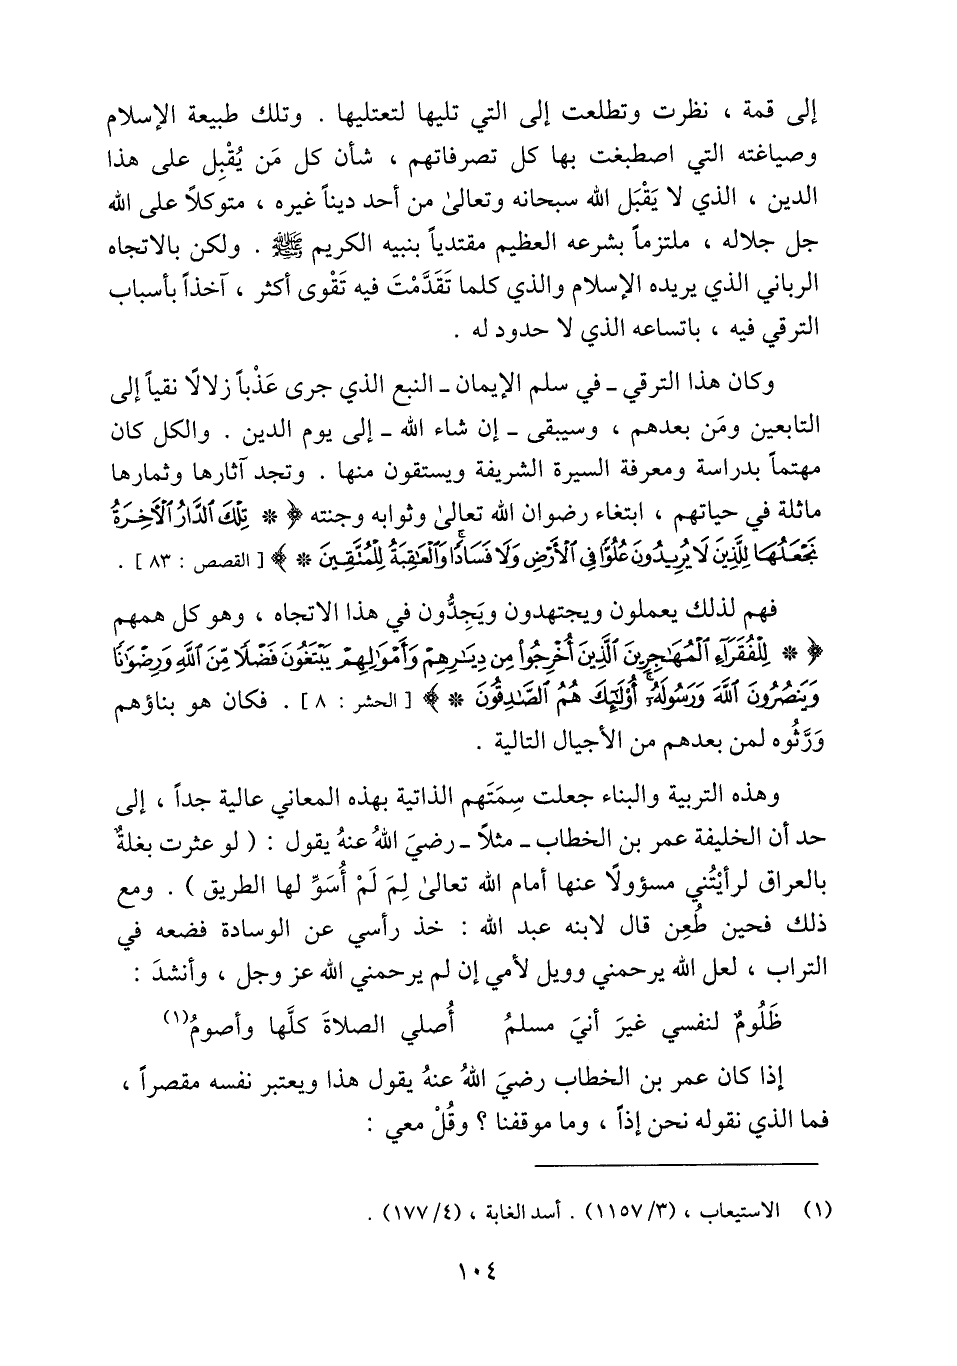 إلى قمة ، نظرت وتطلعت إلى التي تليها لتعتليها . وتلك طبيعة الإسلام
وصياغته التي اصطبغت بها كل تصرفاتهم ، شأن كل مَن يُقْبِل على هذا
الدين ، الذي لا يَقْبَل الله سبحانه وتعالىٰ من أحد ديناً غيره ، متوكلاً على الله
جل جلاله ، ملتزماً بشرعه العظيم مقتدياً بنبيه الكريم ﷺ . ولكن بالاتجاه
الرباني الذي يريده الإسلام والذي كلما تَقَدَّمْتَ فيه تَقْوى أكثر ، آخذاً بأسباب
الترقي فيه ، باتساعه الذي لا حدود له .
وكان هذا الترقي ـ في سلم الإيمان ـ النبع الذي جرى عَذْباً زلالًا نقياً إلى
التابعين ومَن بعدهم ، وسيبقى ـ إن شاء الله ـ إلى يوم الدين . والكل كان
مهتماً بدراسة ومعرفة السيرة الشريفة ويستقون منها . وتجد آثارها وثمارها
ماثلة في حياتهم ، ابتغاء رضوان الله تعالىٰ وثوابه وجنته ﴿ * تِلْكَ ٱلدَّارُ ٱلْأَخِرَةُ
نَجْعَلُهَا لِلَّذِينَ لَا يُرِيدُونَ عُلُوًّا فِي ٱلْأَرْضِ وَلَا فَسَادًا ۚ وَٱلْعَٰقِبَةُ لِلْمُتَّقِينَ * ﴾ [ القصص : ٨٣ ] .
فهم لذلك يعملون ويجتهدون ويَجِدُّون في هذا الاتجاه ، وهو كل همهم
﴿ * لِلْفُقَرَآءِ ٱلْمُهَٰجِرِينَ ٱلَّذِينَ أُخْرِجُوا۟ مِن دِيَٰرِهِمْ وَأَمْوَٰلِهِمْ يَبْتَغُونَ فَضْلًا مِّنَ ٱللَّهِ وَرِضْوَٰنًا
وَيَنصُرُونَ ٱللَّهَ وَرَسُولَهُۥٓ ۚ أُو۟لَٰٓئِكَ هُمُ ٱلصَّٰدِقُونَ * ﴾ [ الحشر : ٨ ] . فكان هو بناؤهم
وَرَّثُوه لمن بعدهم من الأجيال التالية .
وهذه التربية والبناء جعلت سِمَتَهم الذاتية بهذه المعاني عالية جداً ، إلى
حد أن الخليفة عمر بن الخطاب ـ مثلاً ـ رضيَ اللهُ عنهُ يقول : ( لو عثرت بغلةٌ
بالعراق لرأيْتُني مسؤولًا عنها أمام الله تعالىٰ لِمَ لَمْ أُسَوِّ لها الطريق ) . ومع
ذلك فحين طُعِن قال لابنه عبد الله : خذ رأسي عن الوسادة فضعه في
التراب ، لعل الله يرحمني وويل لأمي إن لم يرحمني الله عز وجل ، وأنشدَ :
ظَلُومٌ لنفسي غيرَ أنيَ مسلمُ أُصلي الصلاةَ كلَّها وأصومُ(١)
إذا كان عمر بن الخطاب رضيَ اللهُ عنهُ يقول هذا ويعتبر نفسه مقصراً ،
فما الذي نقوله نحن إذاً ، وما موقفنا ؟ وقُلْ معي :
(١) الاستيعاب ، (٣/ ١١٥٧) . أسد الغابة ، (٤/ ١٧٧) .
١٠٤